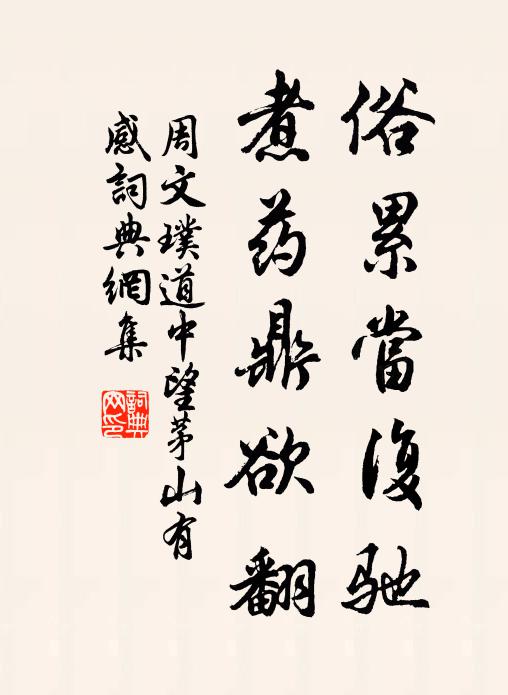 俗累當復馳
煮药鼎欲翻
周文璞道中望茅山有
感詞典網集
詞典
网印